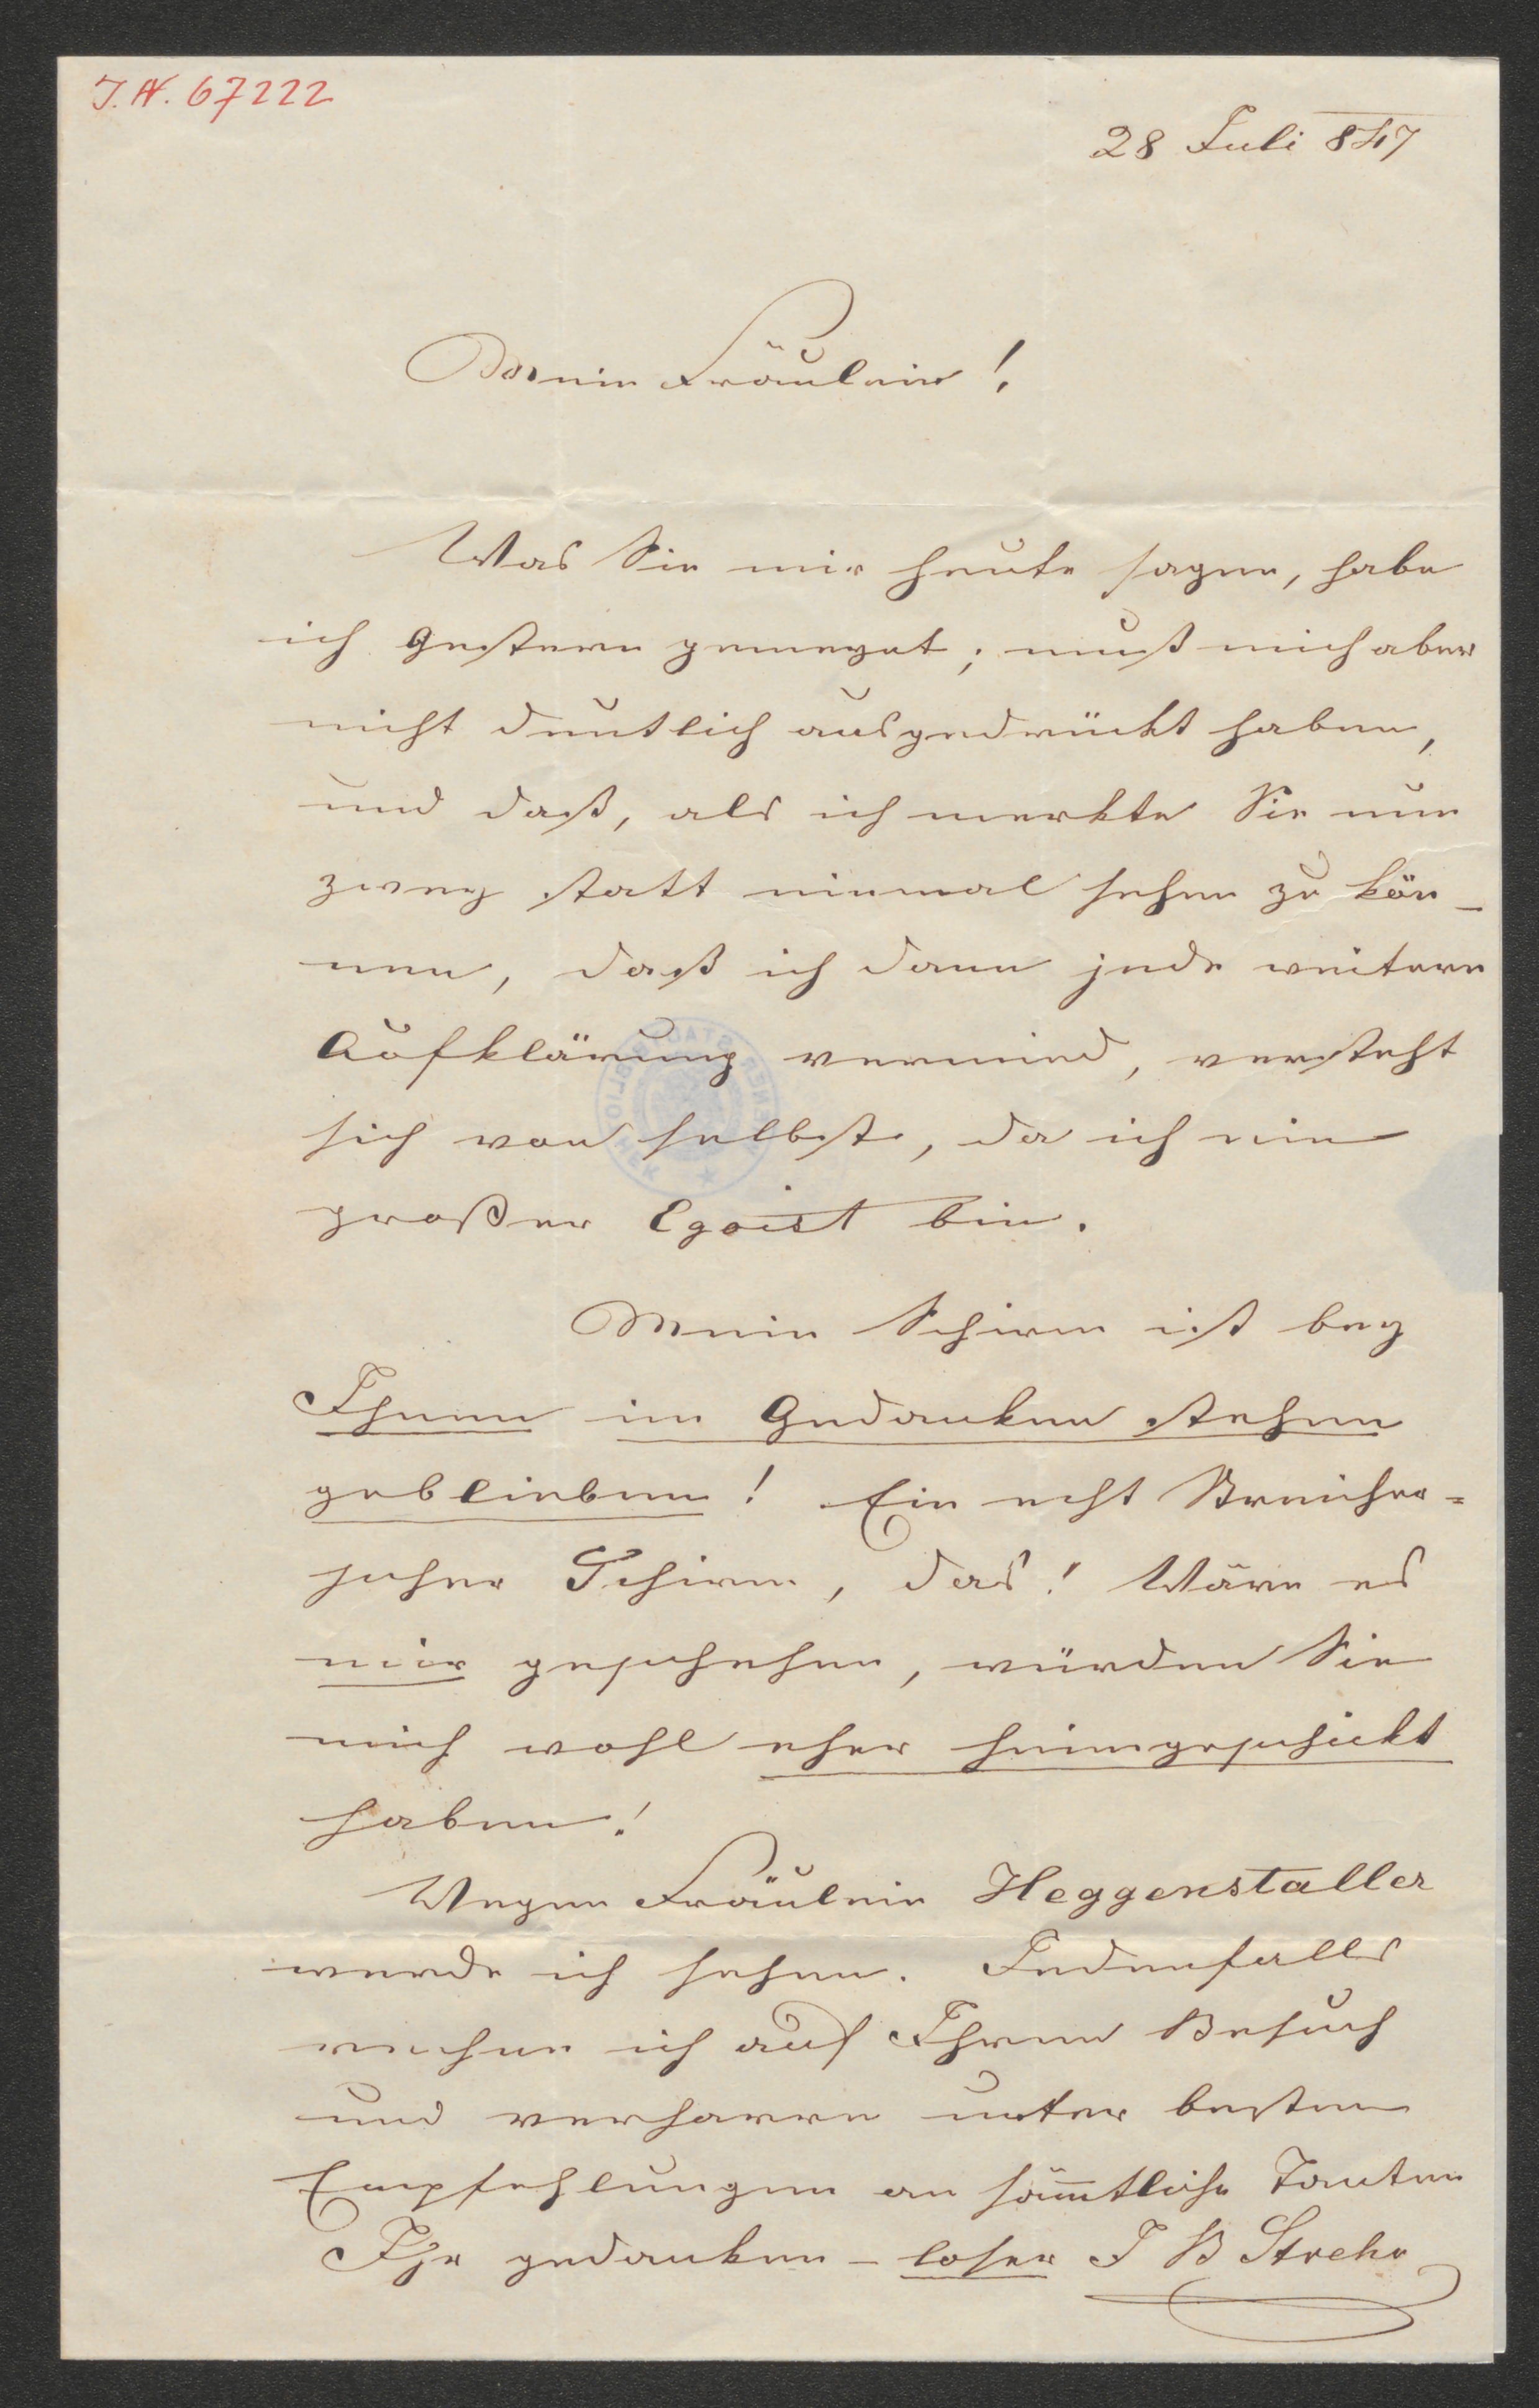 I. N. 67222
28 Juli 847
Mein Fräulein!
Was Sie mir heute sagen, habe
ich gestern gemeynt; muß mich aber
nicht deutlich ausgedrückt haben,
und daß, als ich merkte Sie nun
zwey statt einmal sehen zu kön-
nen, daß ich dann jede weitere
Aufklärung vermied, versteht
sich von selbst, da ich ein
großer Egoist bin.
Mein Schirm ist bey
Ihnen in Gedanken stehen
geblieben! Ein echt Streicher=
scher Schirm, das! Wäre es
mir geschehen, würden Sie
mich wohl eher heimgeschickt
haben!
Wegen Fräulein Heggenstaller
werde ich sehen. Jedenfalls
rechne ich auf Ihren Besuch
und verharre unter besten
Empfehlungen an sämtliche Tanten
Ihr gedanken-loser J B Streher